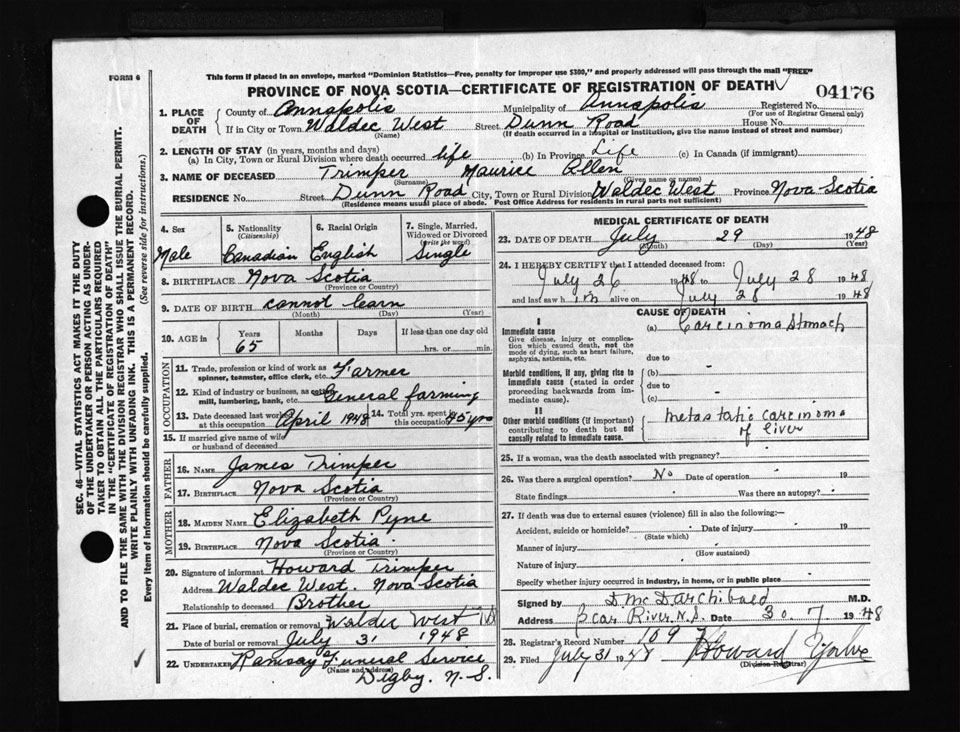 FORM 6
This form if placed in an envelope, marked "Dominion Statistics—Free, penalty for improper use $300," and properly addressed will pass through the mail "FREE"
PROVINCE OF NOVA SCOTIA—CERTIFICATE OF REGISTRATION OF DEATH
04176
1. PLACE OF DEATH
County of Annapolis Municipality of Annapolis Registered No.
(For use of Registrar General only)
If in City or Town Waldec West Street Dunn Road House No.
(Name) (If death occurred in a hospital or institution, give the name instead of street and number)
2. LENGTH OF STAY (in years, months and days)
(a) In City, Town or Rural Division where death occurred life (b) In Province Life (c) In Canada (if immigrant)
3. NAME OF DECEASED Trimper Maurice Allen
(Surname) (Given name or names)
RESIDENCE No. Street Dunn Road City, Town or Rural Division Waldec West Province Nova Scotia
(Residence means usual place of abode. Post Office Address for residents in rural parts not sufficient)
4. Sex
Male
5. Nationality
(Citizenship)
Canadian
6. Racial Origin
English
7. Single, Married, Widowed or Divorced
(write the word)
Single
8. BIRTHPLACE Nova Scotia
(Province or Country)
9. DATE OF BIRTH cannot learn
(Month) (Day) (Year)
10. AGE in Years Months Days If less than one day old
65 hrs. or min.
OCCUPATION
11. Trade, profession or kind of work as Farmer
spinner, teamster, office clerk, etc.
12. Kind of industry or business, as cotton General farming
mill, lumbering, bank, etc.
13. Date deceased last worked at this occupation April 1948
14. Total yrs. spent in this occupation 45 yrs
15. If married give name of wife or husband of deceased
FATHER
16. NAME James Trimper
17. BIRTHPLACE Nova Scotia
(Province or Country)
MOTHER
18. MAIDEN NAME Elizabeth Pyne
19. BIRTHPLACE Nova Scotia
(Province or Country)
20. Signature of informant Howard Trimper
Address Waldec West. Nova Scotia
Relationship to deceased Brother
21. Place of burial, cremation or removal Waldec West
Date of burial or removal July 31 1948
22. UNDERTAKER Ramsay Funeral Service
(Name and address)
Digby. N. S.
MEDICAL CERTIFICATE OF DEATH
23. DATE OF DEATH July 29 1948
(Month) (Day) (Year)
24. I HEREBY CERTIFY that I attended deceased from:
July 26 1948 to July 28 1948
and last saw him alive on July 28 1948
CAUSE OF DEATH
I
Immediate cause (a) Carcinoma Stomach
Give disease, injury or complication which caused death, not the mode of dying, such as heart failure, asphyxia, asthenia, etc.
due to
Morbid conditions, if any, giving rise to immediate cause (stated in order proceeding backwards from immediate cause).
(b)
due to
(c)
II
Other morbid conditions (if important) contributing to death but not causally related to immediate cause.
metastatic carcinoma
of liver
25. If a woman, was the death associated with pregnancy?
26. Was there a surgical operation? No Date of operation 19
State findings Was there an autopsy?
27. If death was due to external causes (violence) fill in also the following:—
Accident, suicide or homicide? Date of injury 19
(State which)
Manner of injury
(How sustained)
Nature of injury
Specify whether injury occurred in industry, in home, or in public place
Signed by D. McD Archibald M.D.
Address Bear River N.S. Date 30. 7 1948
28. Registrar's Record Number 109
29. Filed July 31 1948 Howard
(Division Registrar)
SEC. 46—VITAL STATISTICS ACT MAKES IT THE DUTY
OF THE UNDERTAKER OR PERSON ACTING AS UNDER-
TAKER TO OBTAIN ALL THE PARTICULARS REQUIRED
IN THE "CERTIFICATE OF REGISTRATION OF DEATH"
AND TO FILE THE SAME WITH THE DIVISION REGISTRAR WHO SHALL ISSUE THE BURIAL PERMIT.
WRITE PLAINLY WITH UNFADING INK. THIS IS A PERMANENT RECORD.
Every item of information should be carefully supplied. (See reverse side for instructions.)